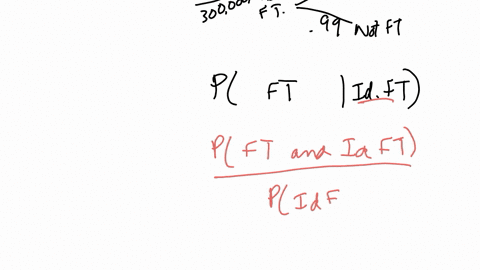 300,000
FT.
.99 Not FT
P( FT | Id. FT)
P( FT and Id FT)
P( Id F